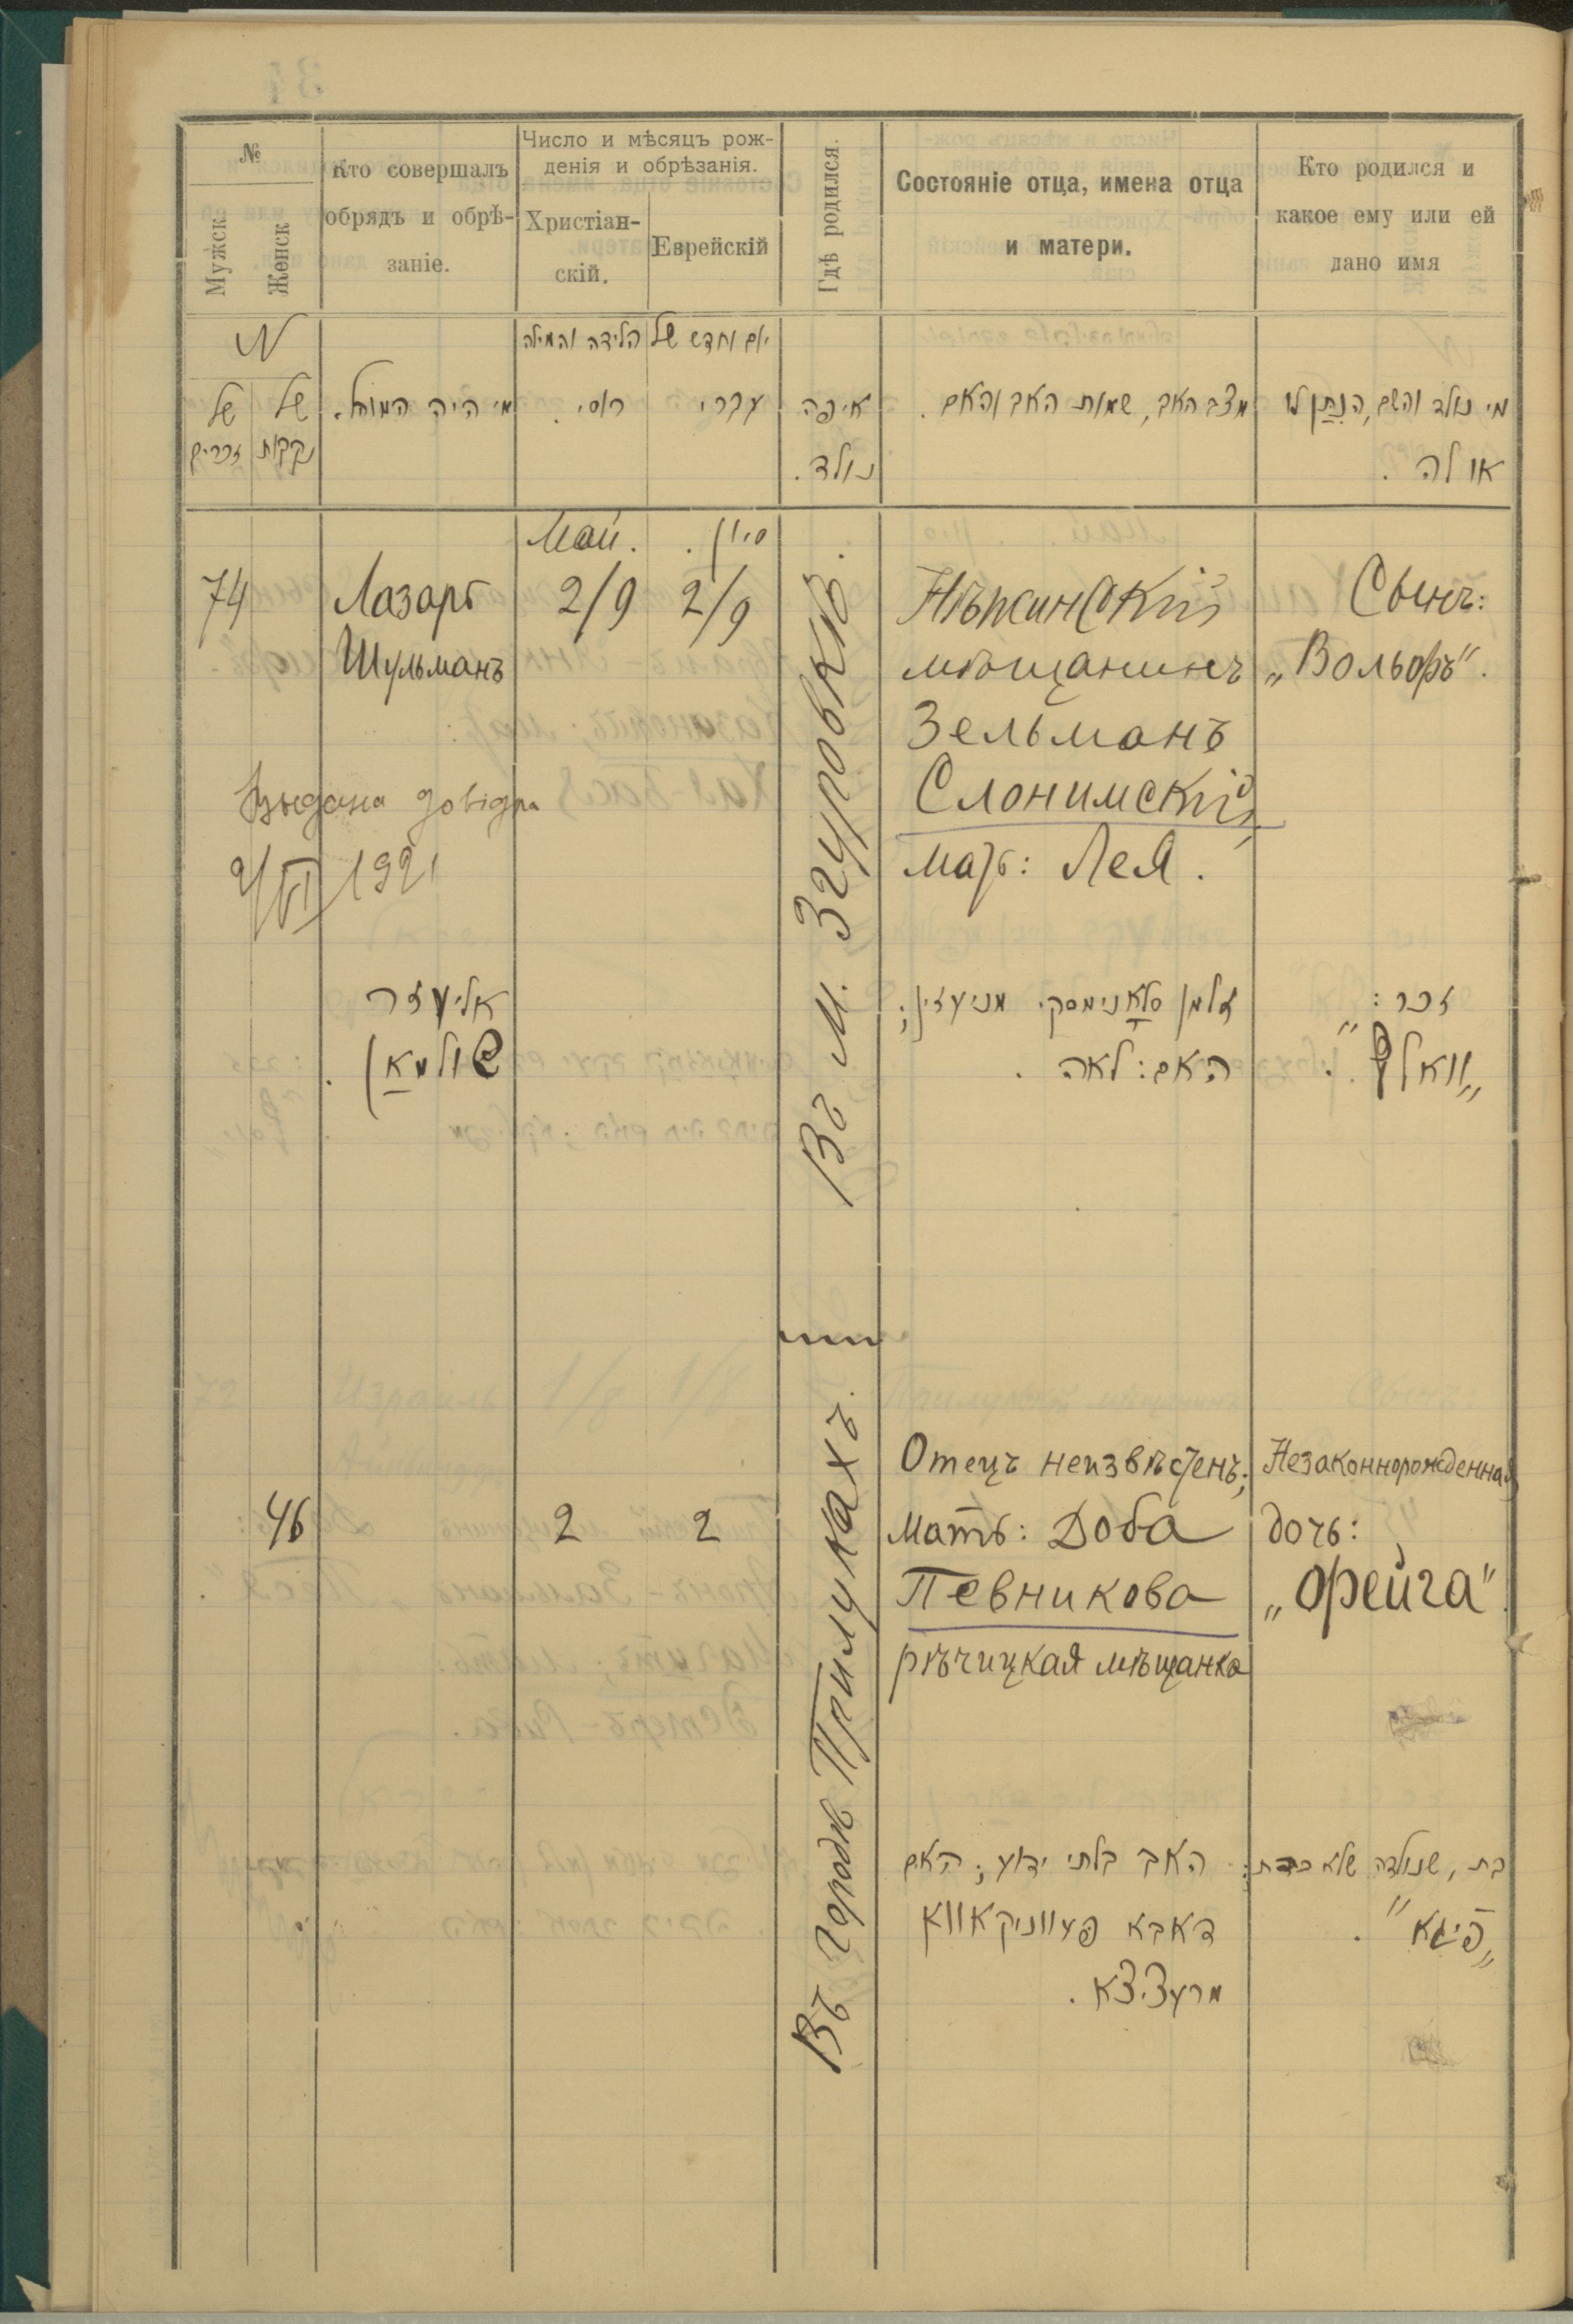 №
Мужск.
Женск
Кто совершалъ
обрядъ и обрѣ-
заніе.
Число и мѣсяцъ рож-
денія и обрѣзанія.
Христіан-
скій.
Еврейскій
Гдѣ родился.
Состояніе отца, имена отца
и матери.
Кто родился и
какое ему или ей
дано имя
N
של זכרים
של נקבות
מי היה המוהל.
יום וחדש של הלידה והמילה
רוסי.
עברי
איפה
נולד.
מצב האב, שמות האב והאם.
מי נולד והשם, הנתן לו
או לה.
Май.
סיון.
74
Лазарь
Шульманъ
2/9
2/9
Въ м. Згуровкѣ.
Нѣжинскій
мѣщанинъ
Зельманъ
Слонимскій
мать: Лея.
Сынъ:
„Вольфъ".
Выдана довідка
1921
אליעזר
שולמאן.
זלמן סלאנימסקי מניעזין;
האם: לאה.
זכר:
„וואלף".
46
2
2
Въ городѣ Прилукахъ.
Отецъ неизвѣстенъ;
мать: Доба
Певникова
рѣчицкая мѣщанка
Незаконнорожденная
дочь:
„Фейга".
האב בלתי ידוע; האם
דאבא פעווניקאווא
מרעציצא.
בת, שנולדה שלא כדת:
„פייגא".